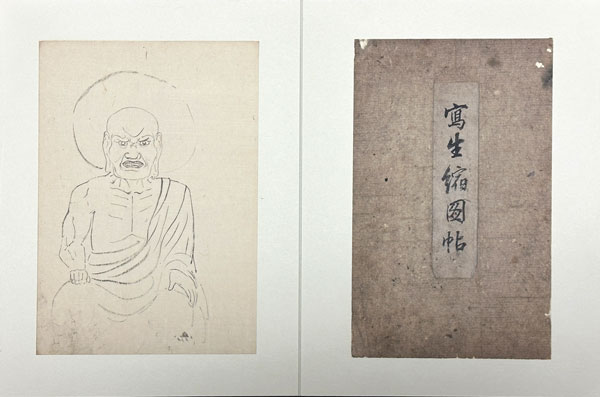 寫生縮図帖